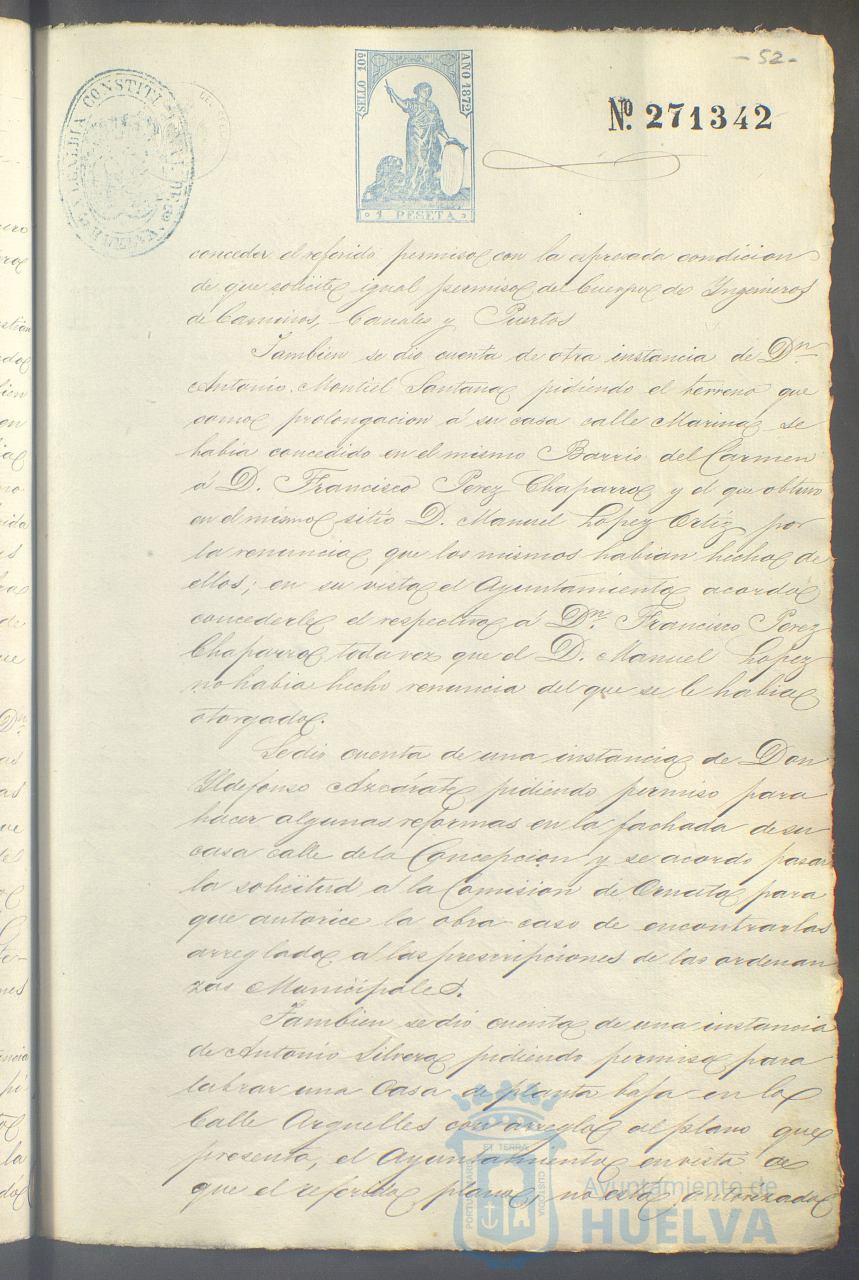 - 52 -
SELLO 10º AÑO 1872
Nº. 271342
1 PESETA
conceder el referido permiso con la espresada condicion
de que solicite igual permiso del Cuerpo de Yngenieros
de Caminos, Canales y Puertos
Tambien se dio cuenta de otra instancia de Dn
Antonio Montiel Santana pidiendo el terreno que
como prolongacion á su casa calle Marina se
habia concedido en el mismo Barrio del Carmen
á D. Francisco Perez Chaparro y el que obtuvo
en el mismo sitio D. Manuel Lopez Ortiz por
la renuncia que los mismos habian hecho de
ellos; en su vista el Ayuntamiento acordó
concederle el respectivo á Dn. Francisco Perez
Chaparro toda vez que el D. Manuel Lopez
no habia hecho renuncia del que se le habia
otorgado.
Se dio cuenta de una instancia de Don
Yldefonso Azcárate pidiendo permiso para
hacer algunas reformas en la fachada de su
casa calle de la Concepcion y se acordo pasar
la solicitud á la Comision de Ornato para
que autorice la obra caso de encontrarlas
arreglado á las prescripciones de las ordenan
zas Municipales.
Tambien se dió cuenta de una instancia
de Antonio Silvera pidiendo permiso para
labrar una Casa de planta baja en la
Calle Arguelles con arreglo al plano que
presenta, el Ayuntamiento en vista de
que el referido plano, no está autorizado
Ayuntamiento de
HUELVA